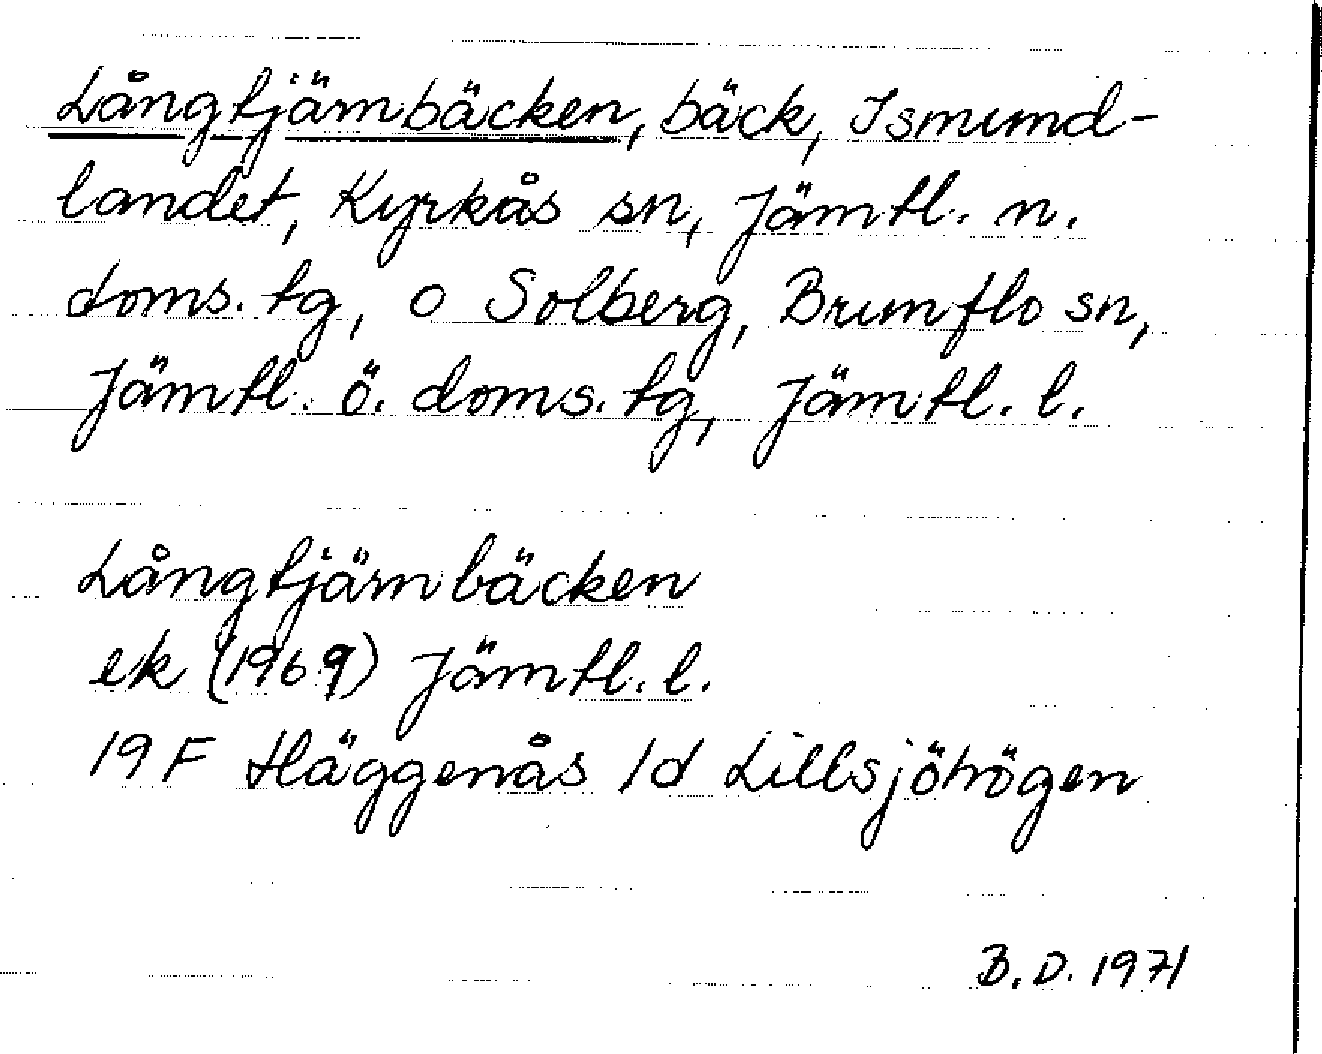 Långtjärnbäcken, bäck, Ismund-
landet, Kyrkås sn, Jämtl. n.
doms. tg, o Solberg, Brunflo sn,
Jämtl. ö. doms. tg, Jämtl. l.
Långtjärnbäcken
ek (1969) Jämtl. l.
19 F Häggenås 1d Lillsjöhögen
B. D. 1971